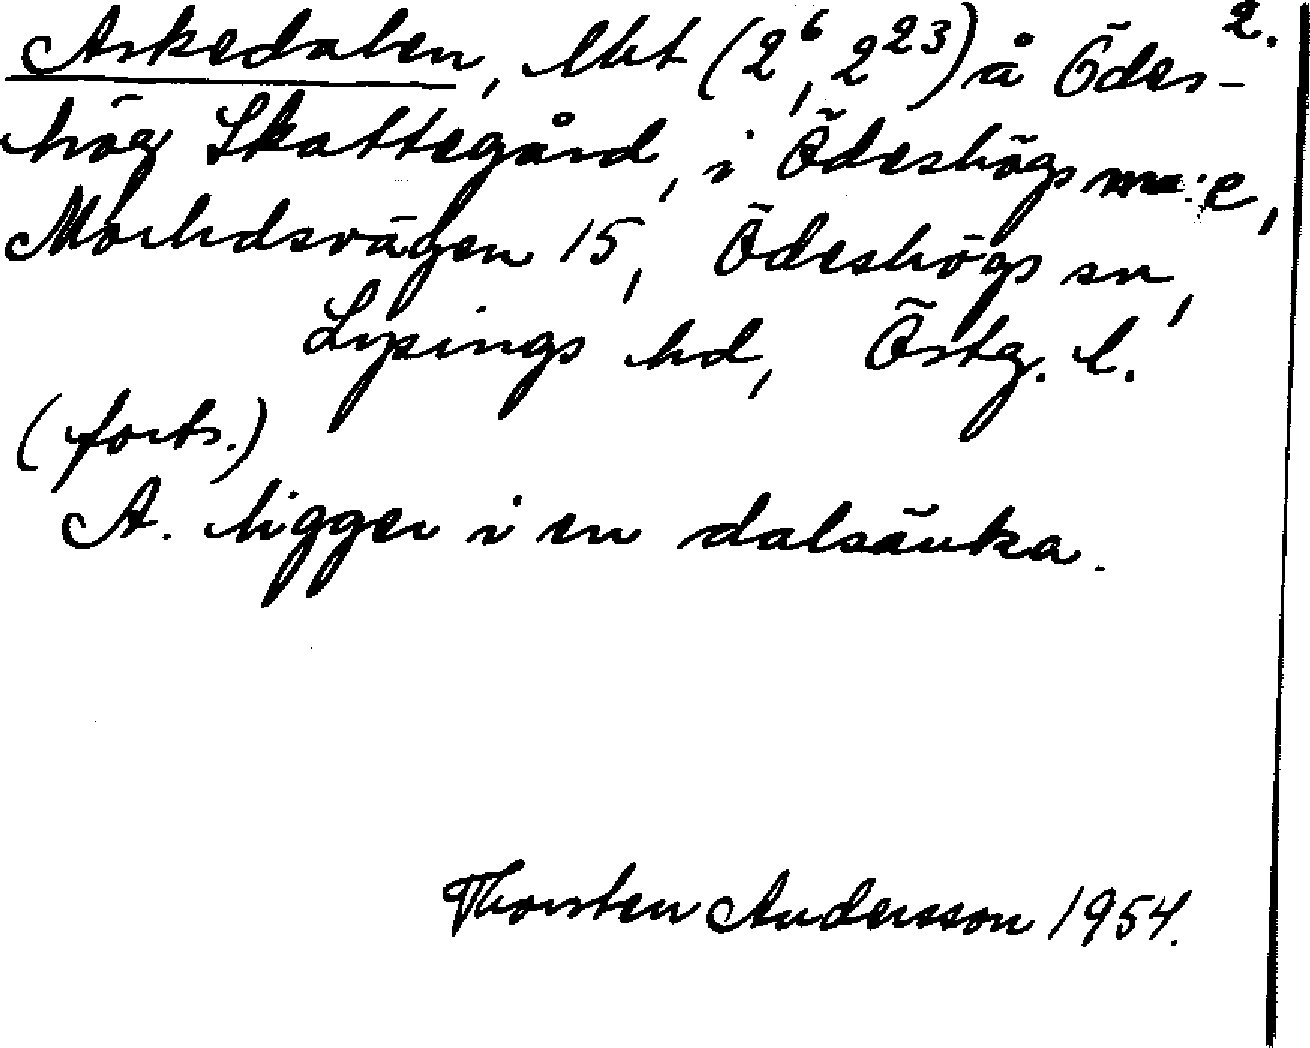 2.
Askedalen, lht (2⁶, 2²³) å Ödes-
hög Skattegård, i Ödeshögs ma:e,
Morlidsvägen 15, Ödeshögs sn,
Lysings hd, Östg. l.
(forts.)
A. ligger i en dalsänka.
Thorsten Andersson 1954.